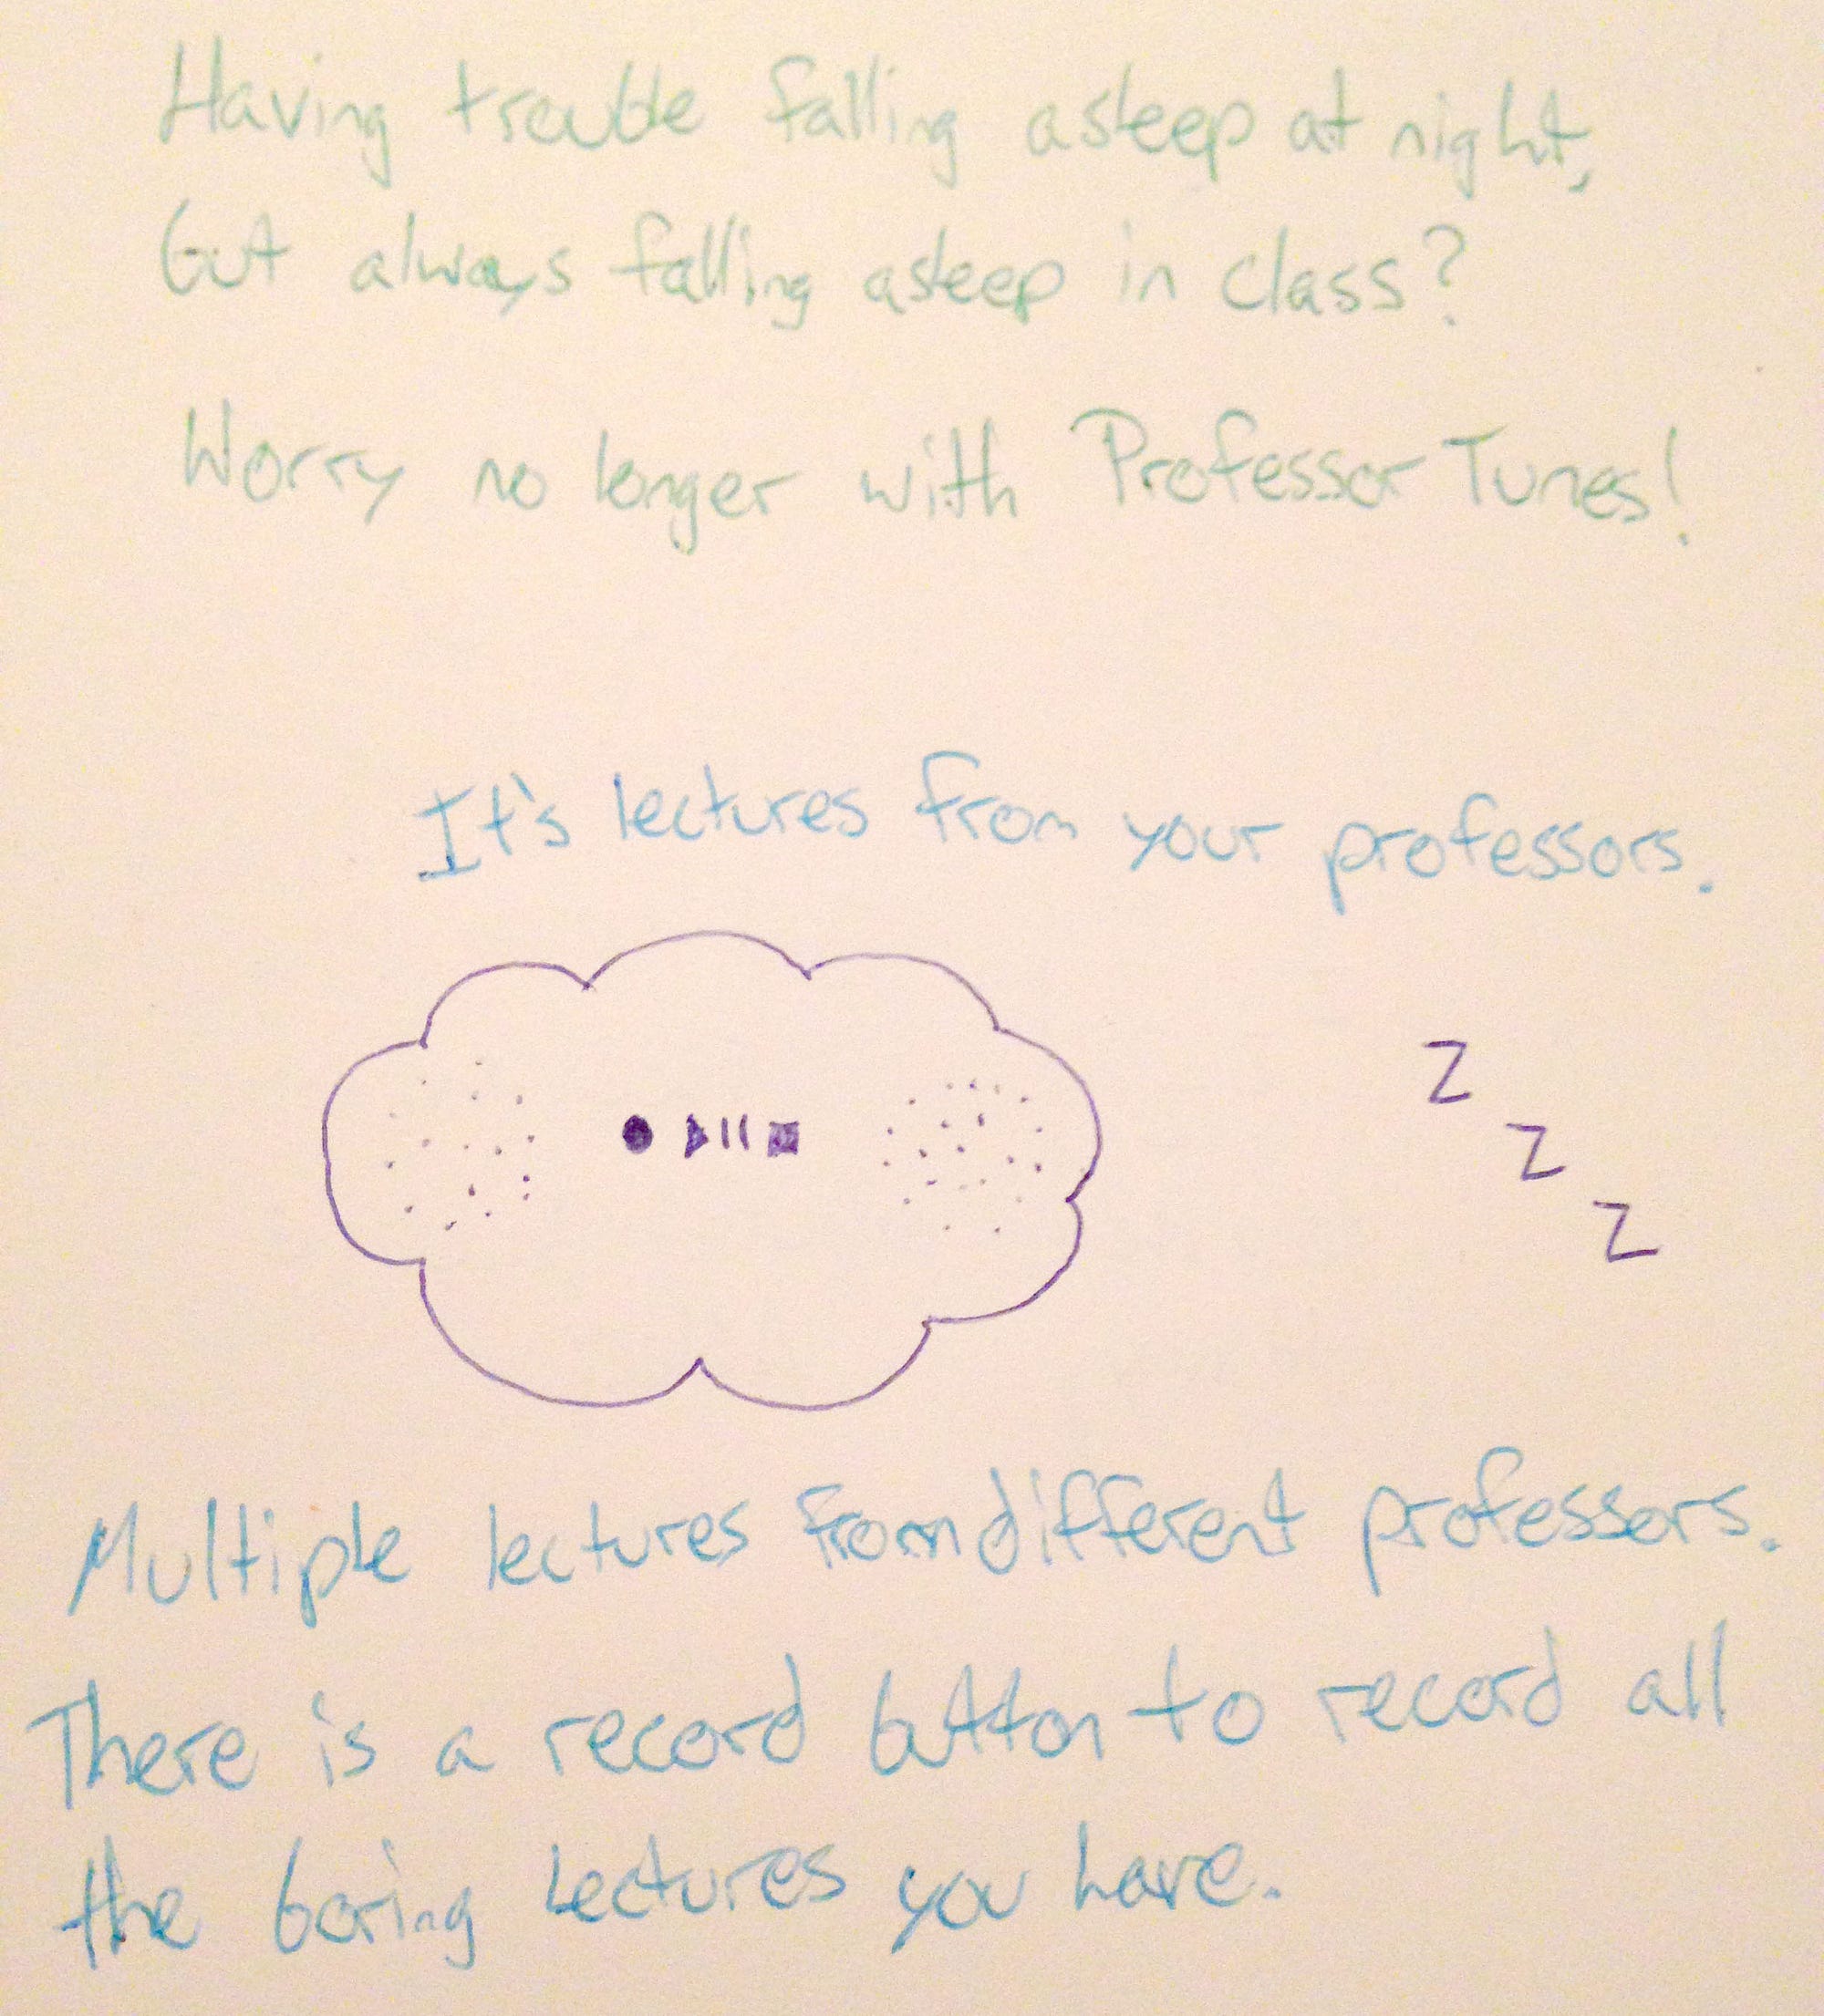 Having trouble falling asleep at night,
but always falling asleep in class?
Worry no longer with Professor Tunes!
It's lectures from your professors.
Z
Z
Z
Multiple lectures from different professors.
There is a record button to record all
the boring lectures you have.